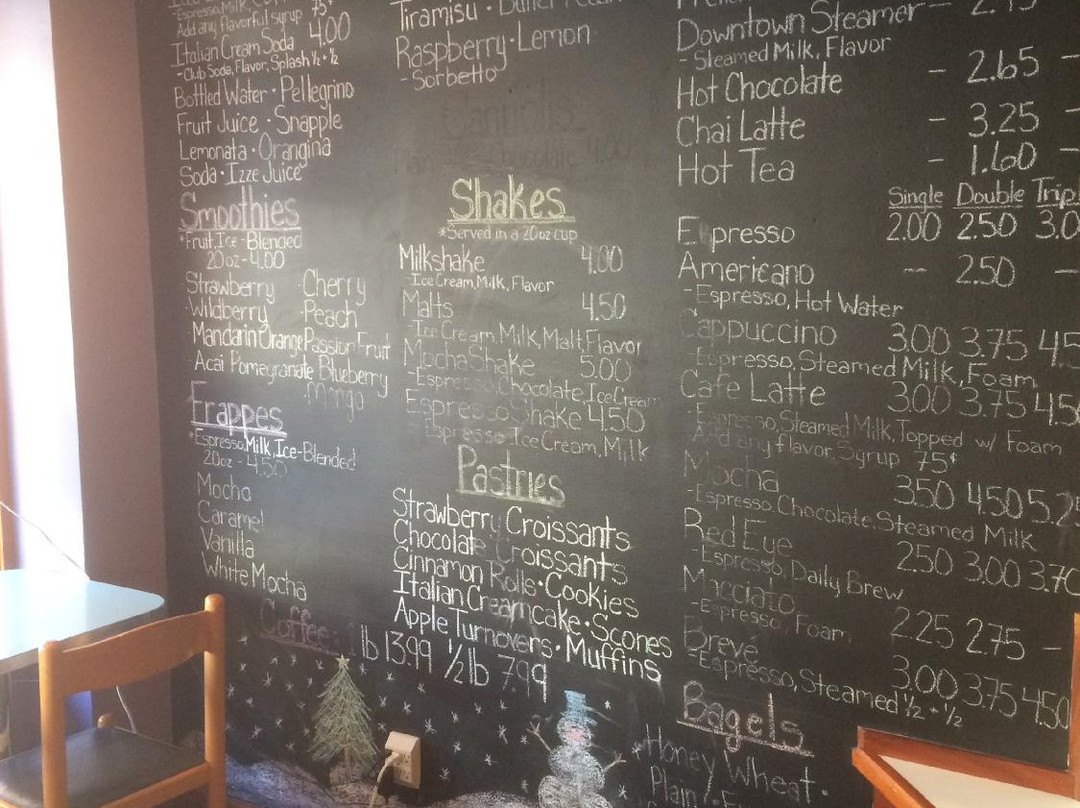 Espresso, Milk,
Add any flavorful syrup 75¢
Italian Cream Soda 4.00
- Club Soda, Flavor, Splash ½ + ½
Bottled Water · Pellegrino
Fruit Juice · Snapple
Lemonata · Orangina
Soda · Izze Juice
Smoothies
*Fruit, Ice - Blended
20oz - 4.00
Strawberry · Cherry
· Wildberry · Peach
· Mandarin Orange Passion Fruit
· Acai Pomegranate Blueberry
· Mango
Frappes
*Espresso, Milk, Ice-Blended
20oz - 4.50
Mocha
Caramel
Vanilla
White Mocha
Coffee 1 lb 13.99 ½ lb 7.99
Tiramisu ·
Raspberry · Lemon
- Sorbetto
Cannolis
Chocolate 4.00
Shakes
*Served in a 20oz cup
Milkshake 4.00
- Ice Cream, Milk, Flavor
Malts 4.50
- Ice Cream, Milk, Malt, Flavor
Mocha Shake 5.00
- Espresso, Chocolate, Ice Cream
Espresso Shake 4.50
- Espresso Ice Cream, Milk
Pastries
Strawberry Croissants
Chocolate Croissants
Cinnamon Rolls · Cookies
Italian Creamcake · Scones
Apple Turnovers · Muffins
Downtown Steamer -
- Steamed Milk, Flavor
Hot Chocolate - 2.65 -
Chai Latte - 3.25
Hot Tea - 1.60 -
Single Double Trip
E presso 2.00 2.50 3.0
Americano -- 2.50 --
- Espresso, Hot Water
Cappuccino 3.00 3.75 4.5
- Espresso, Steamed Milk, Foam
Cafe Latte 3.00 3.75 4.50
- Espresso, Steamed Milk, Topped w/ Foam
Add any flavor, Syrup 75¢
Mocha 3.50 4.50 5.2
- Espresso, Chocolate, Steamed Milk
Red Eye 2.50 3.00 3.70
- Espresso, Daily Brew
Macciato 2.25 2.75 -
- Espresso, Foam
Brevé 3.00 3.75 4.50
- Espresso, Steamed ½ + ½
Bagels
Honey Wheat ·
Plain ·